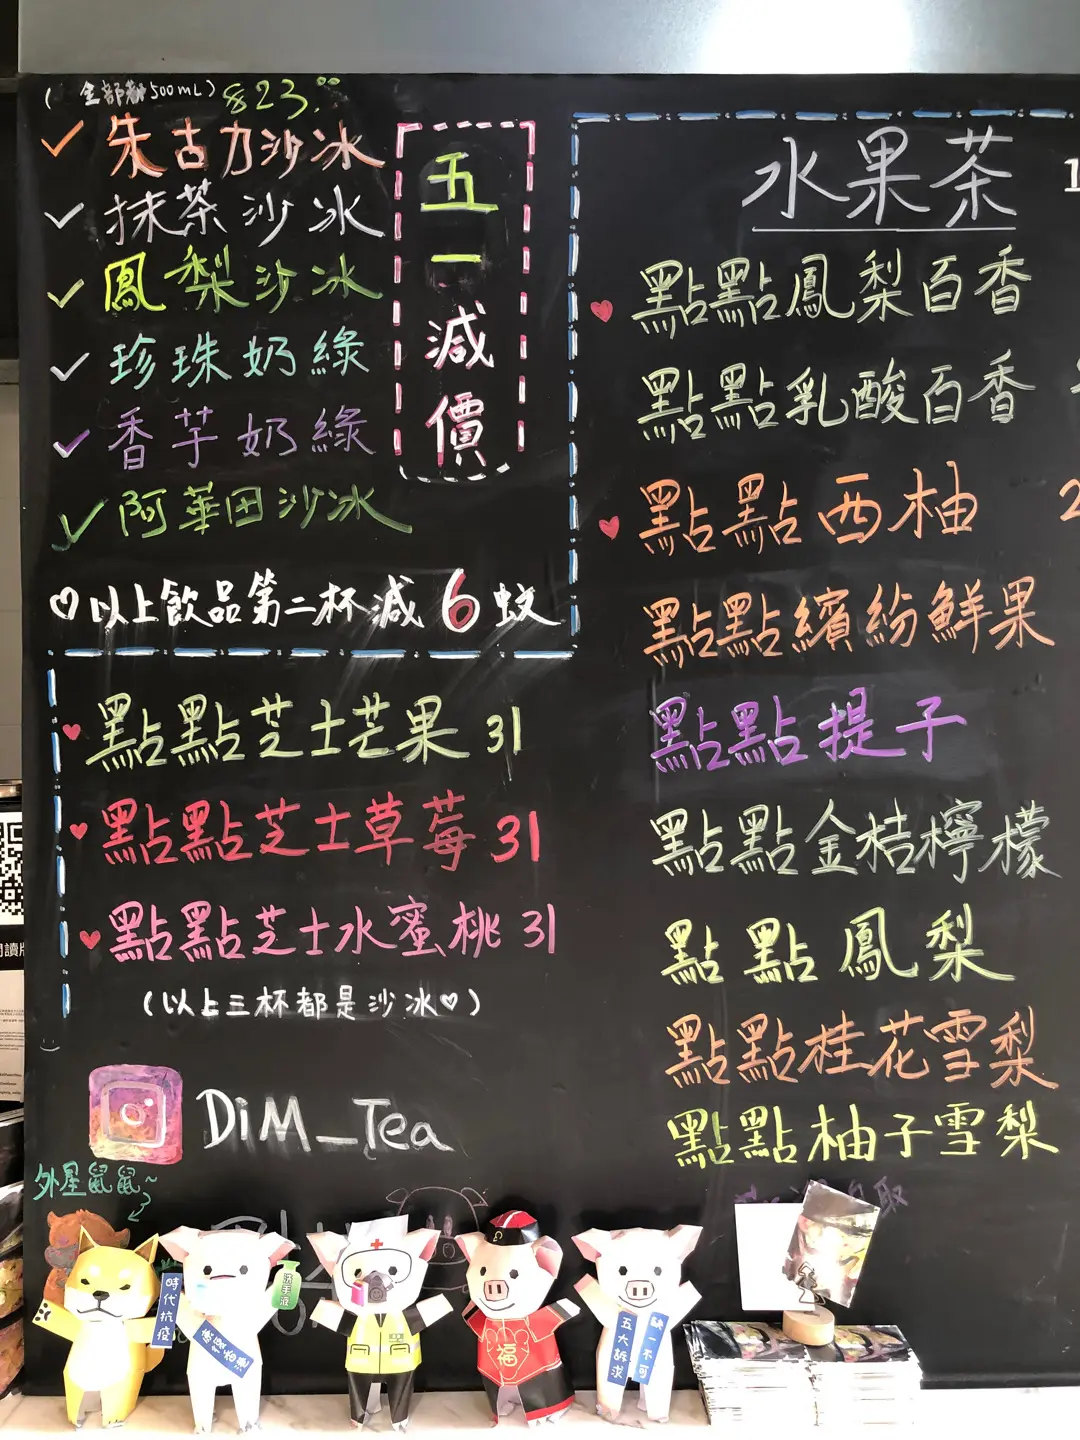 (全部都500mL) $23.00
朱古力沙冰
抹茶沙冰
鳳梨沙冰
珍珠奶綠
香芋奶綠
阿華田沙冰
五一減價
以上飲品第二杯減6蚊
點點芝士芒果 31
點點芝士草莓 31
點點芝士水蜜桃 31
(以上三杯都是沙冰♡)
DiM_Tea
外星鼠鼠~
水果茶
點點鳳梨百香
點點乳酸百香
點點西柚
點點繽紛鮮果
點點提子
點點金桔檸檬
點點鳳梨
點點桂花雪梨
點點柚子雪梨
取
時代抗疫
洗手液
福
五大訴求
缺一不可